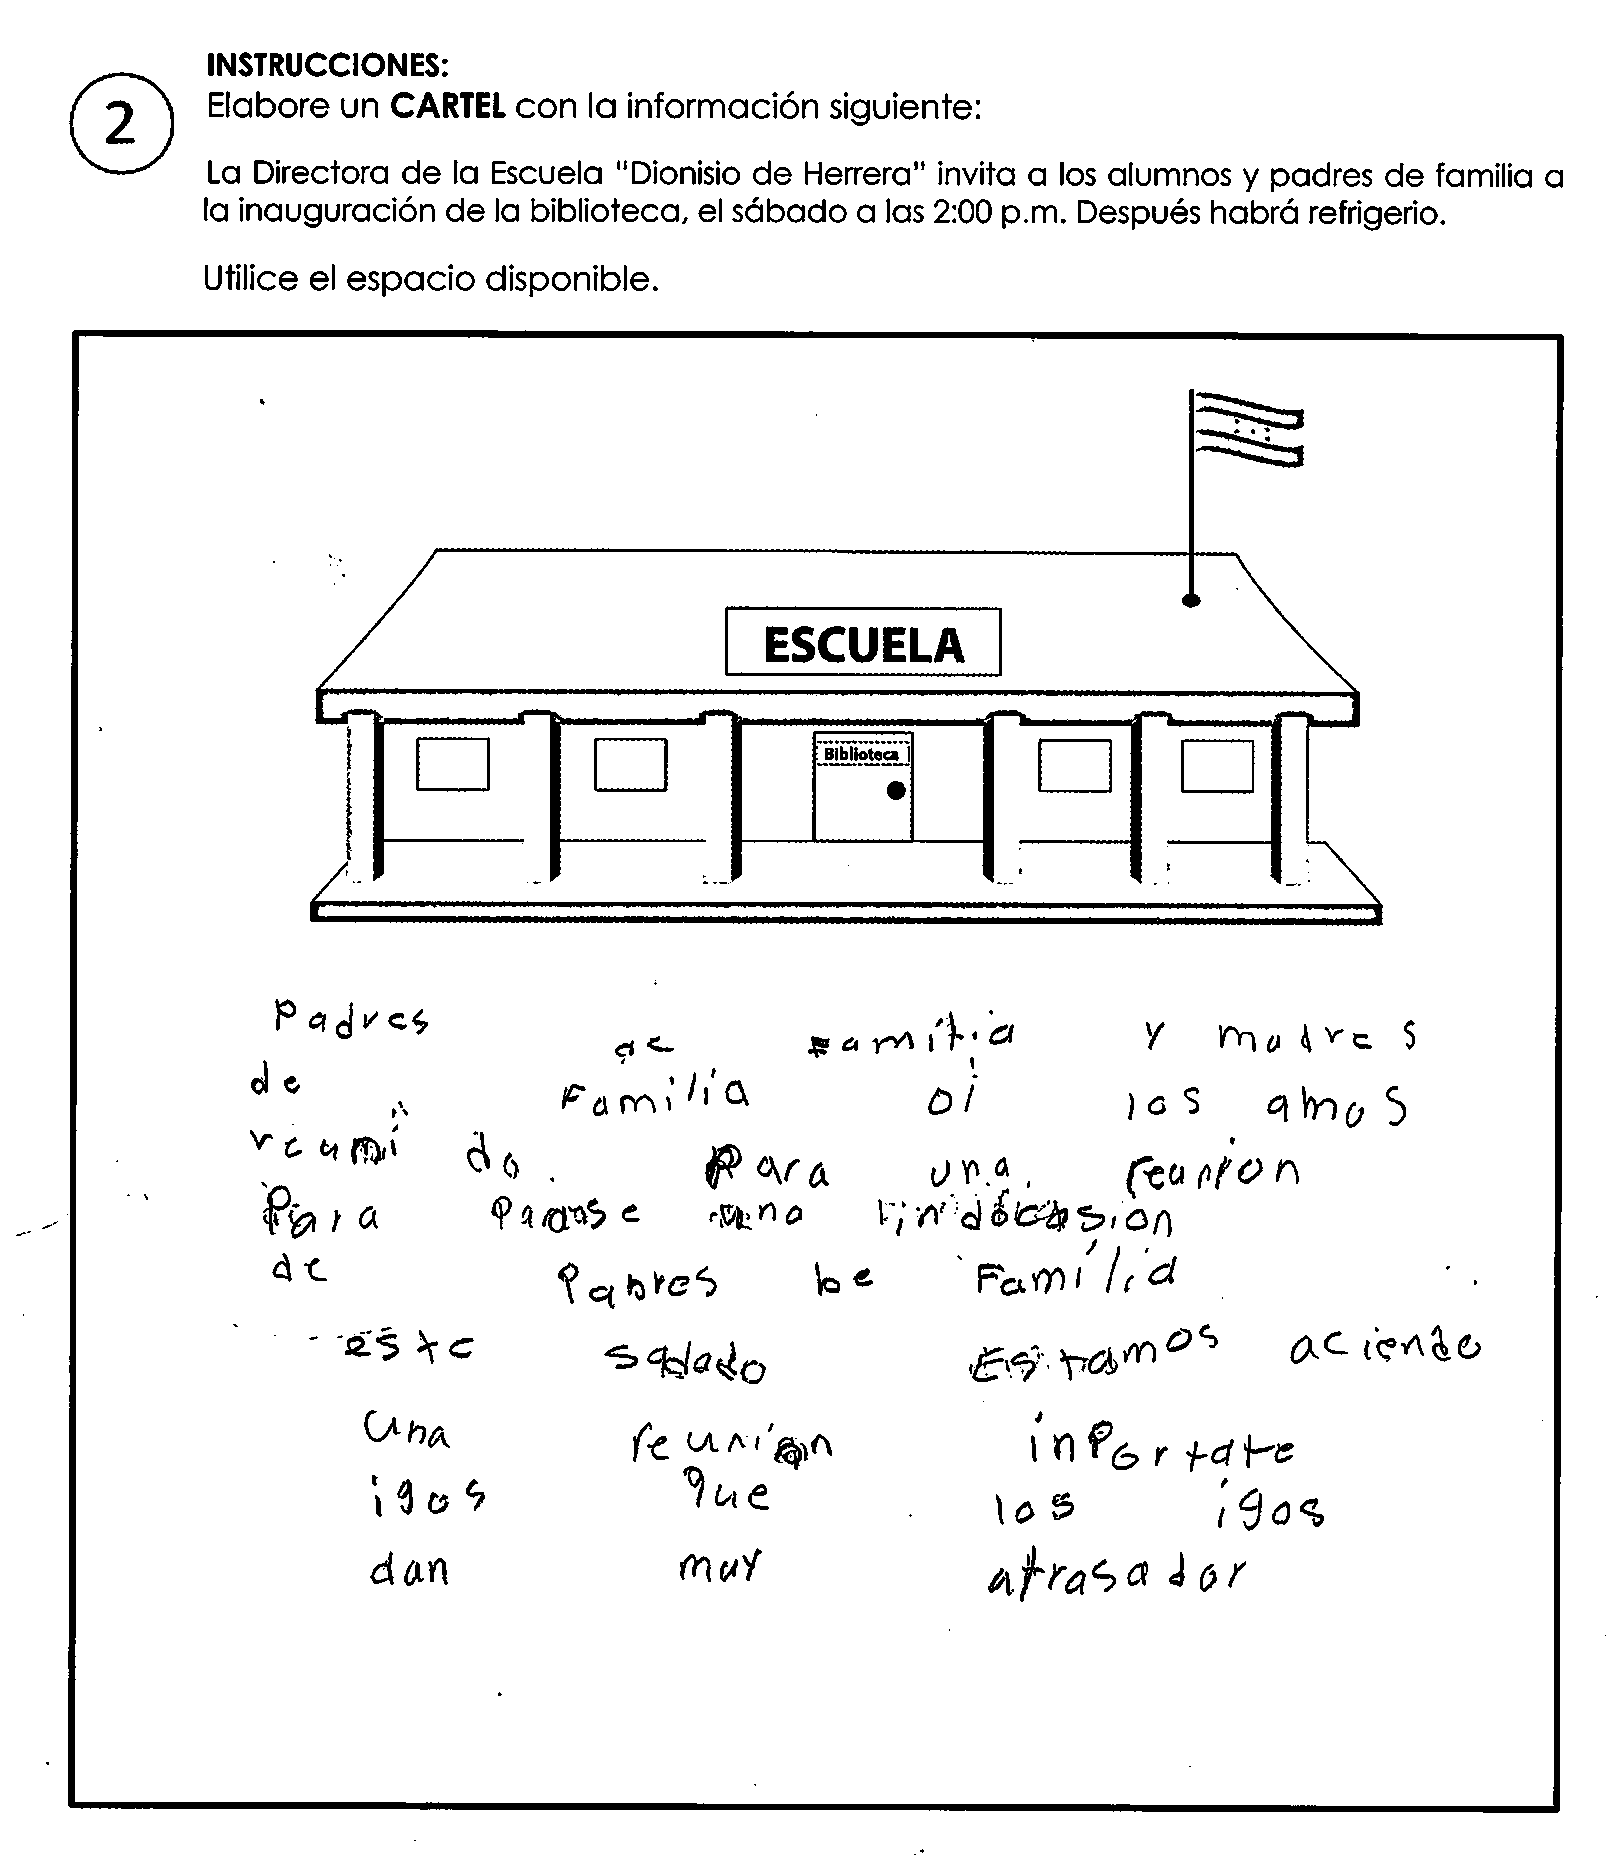 INSTRUCCIONES:
2
Elabore un CARTEL con la información siguiente:
La Directora de la Escuela "Dionisio de Herrera" invita a los alumnos y padres de familia a
la inauguración de la biblioteca, el sábado a las 2:00 p.m. Después habrá refrigerio.
Utilice el espacio disponible.
ESCUELA
Biblioteca
Padres de Familia y madres
de Familia oi los amos
reuni do. Para una reunion
Para una lindocasion
de Pabres be Familia
este Estamos aciendo
una reunion inportate
igos que los igos
dan muy atrasador